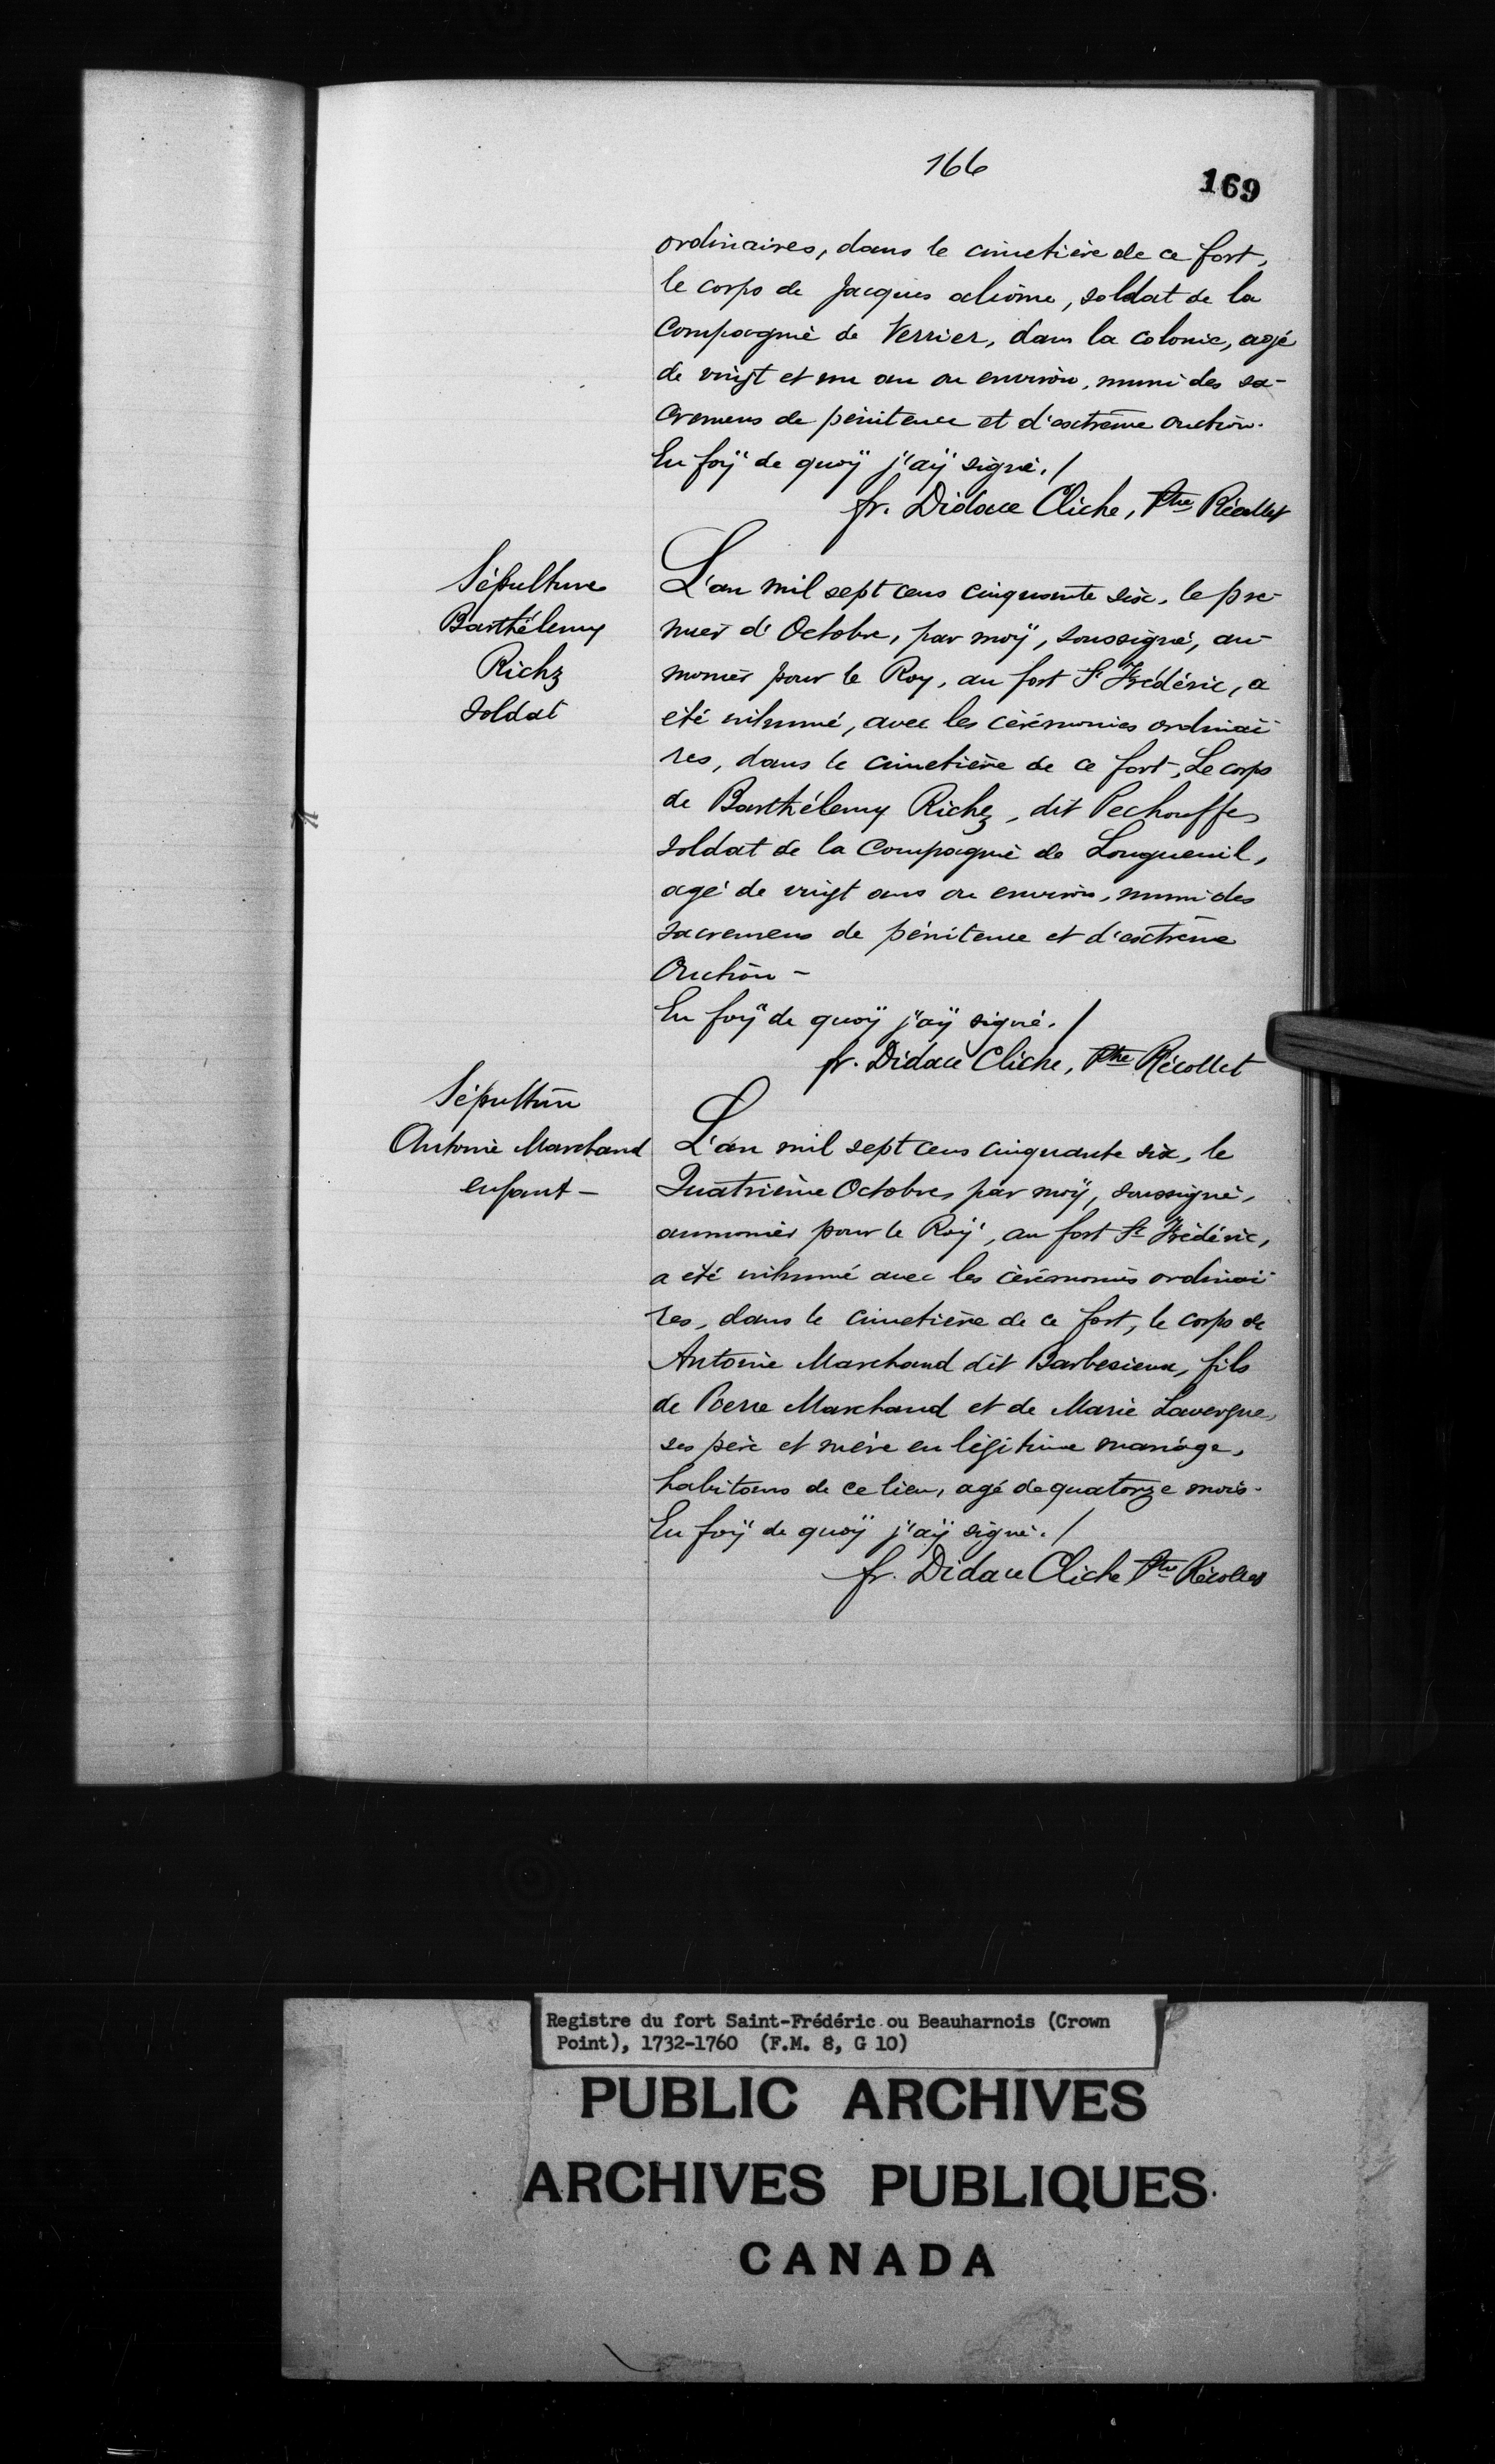 166
169
ordinaires, dans le cimetière de ce fort,
le corps de Jacques aliôme, soldat de la
Compagnie de Verrier, dans la colonie, agé
de vingt et un an ou environ, muni des sa-
cremens de pénitence et d'extrême onction.
En foÿ de quoÿ j'aÿ signé./
fr. Didace Cliche, Ptre Récollet
Sépulture
Barthélemy
Richz
soldat
L'an mil sept cens cinquante six, le pre-
mier d'Octobre, par moÿ, soussigné, au-
monier pour le Roy, au fort St Frédéric, a
été inhumé, avec les cérémonies ordinai-
res, dans le cimetière de ce fort, Le corps
de Barthélemy Richz, dit Pechouffe,
soldat de la Compagnie de Longueuil,
agé de vingt ans ou environ, muni des
sacremens de pénitence et d'extrême
Onction -
En foÿ de quoÿ j'aÿ signé./
fr. Didace Cliche, Ptre Récollet
Sépulture
Antoine Marchand
enfant -
L'an mil sept cens cinquante six, le
Quatrième Octobre, par moÿ, soussigné,
aumonier pour le Roÿ, au fort St Frédéric,
a été inhumé avec les cérémonies ordinai-
res, dans le cimetière de ce fort, le corps de
Antoine Marchand dit Barbesieux, fils
de Pierre Marchand et de Marie Lavergne,
ses père et mère en légitime mariage,
habitans de ce lieu, agé de quatorze mois.
En foÿ de quoÿ j'aÿ signé./
fr. Didace Cliche Ptre Récollet
Registre du fort Saint-Frédéric ou Beauharnois (Crown
Point), 1732-1760 (F.M. 8, G 10)
PUBLIC ARCHIVES
ARCHIVES PUBLIQUES
CANADA